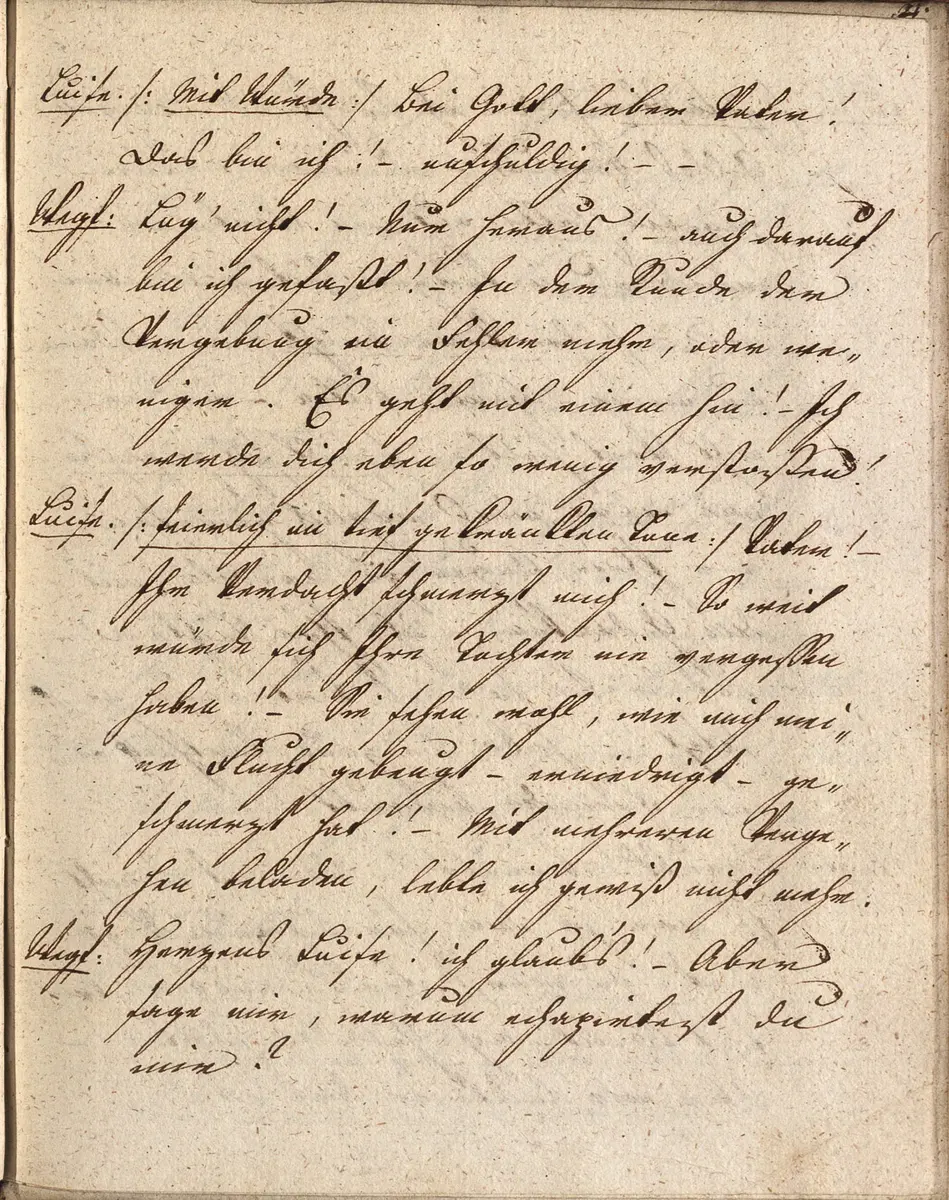 Luise. /: Mit Würde :/ Bei Gott, lieber Vater!
Das bin ich! – unschuldig! – –
Wegf: Lüg' nicht! – Nur heraus! – auch darauf
bin ich gefaßt! – In der Stunde der
Vergebung ein Fehler mehr, oder we„
niger –. Es geht mit einem hin! – Ich
werde dich eben so wenig verstoßen!
Luise. /: feierlich im tief gekränkten Tone :/ Vater! –
Ihr Verdacht schmerzt mich! – So weit
würde sich Ihre Tochter nie vergessen
haben! – Sie sehen wohl, wie mich mei„
ne Flucht gebeugt – erniedrigt – ge„
schmerzt hat! – Mit mehreren Verge„
hen beladen, lebte ich gewiß nicht mehr.
Wegf: Herzens Luise! ich glaub's! – Aber
sage mir, warum echapirtest du
mir?